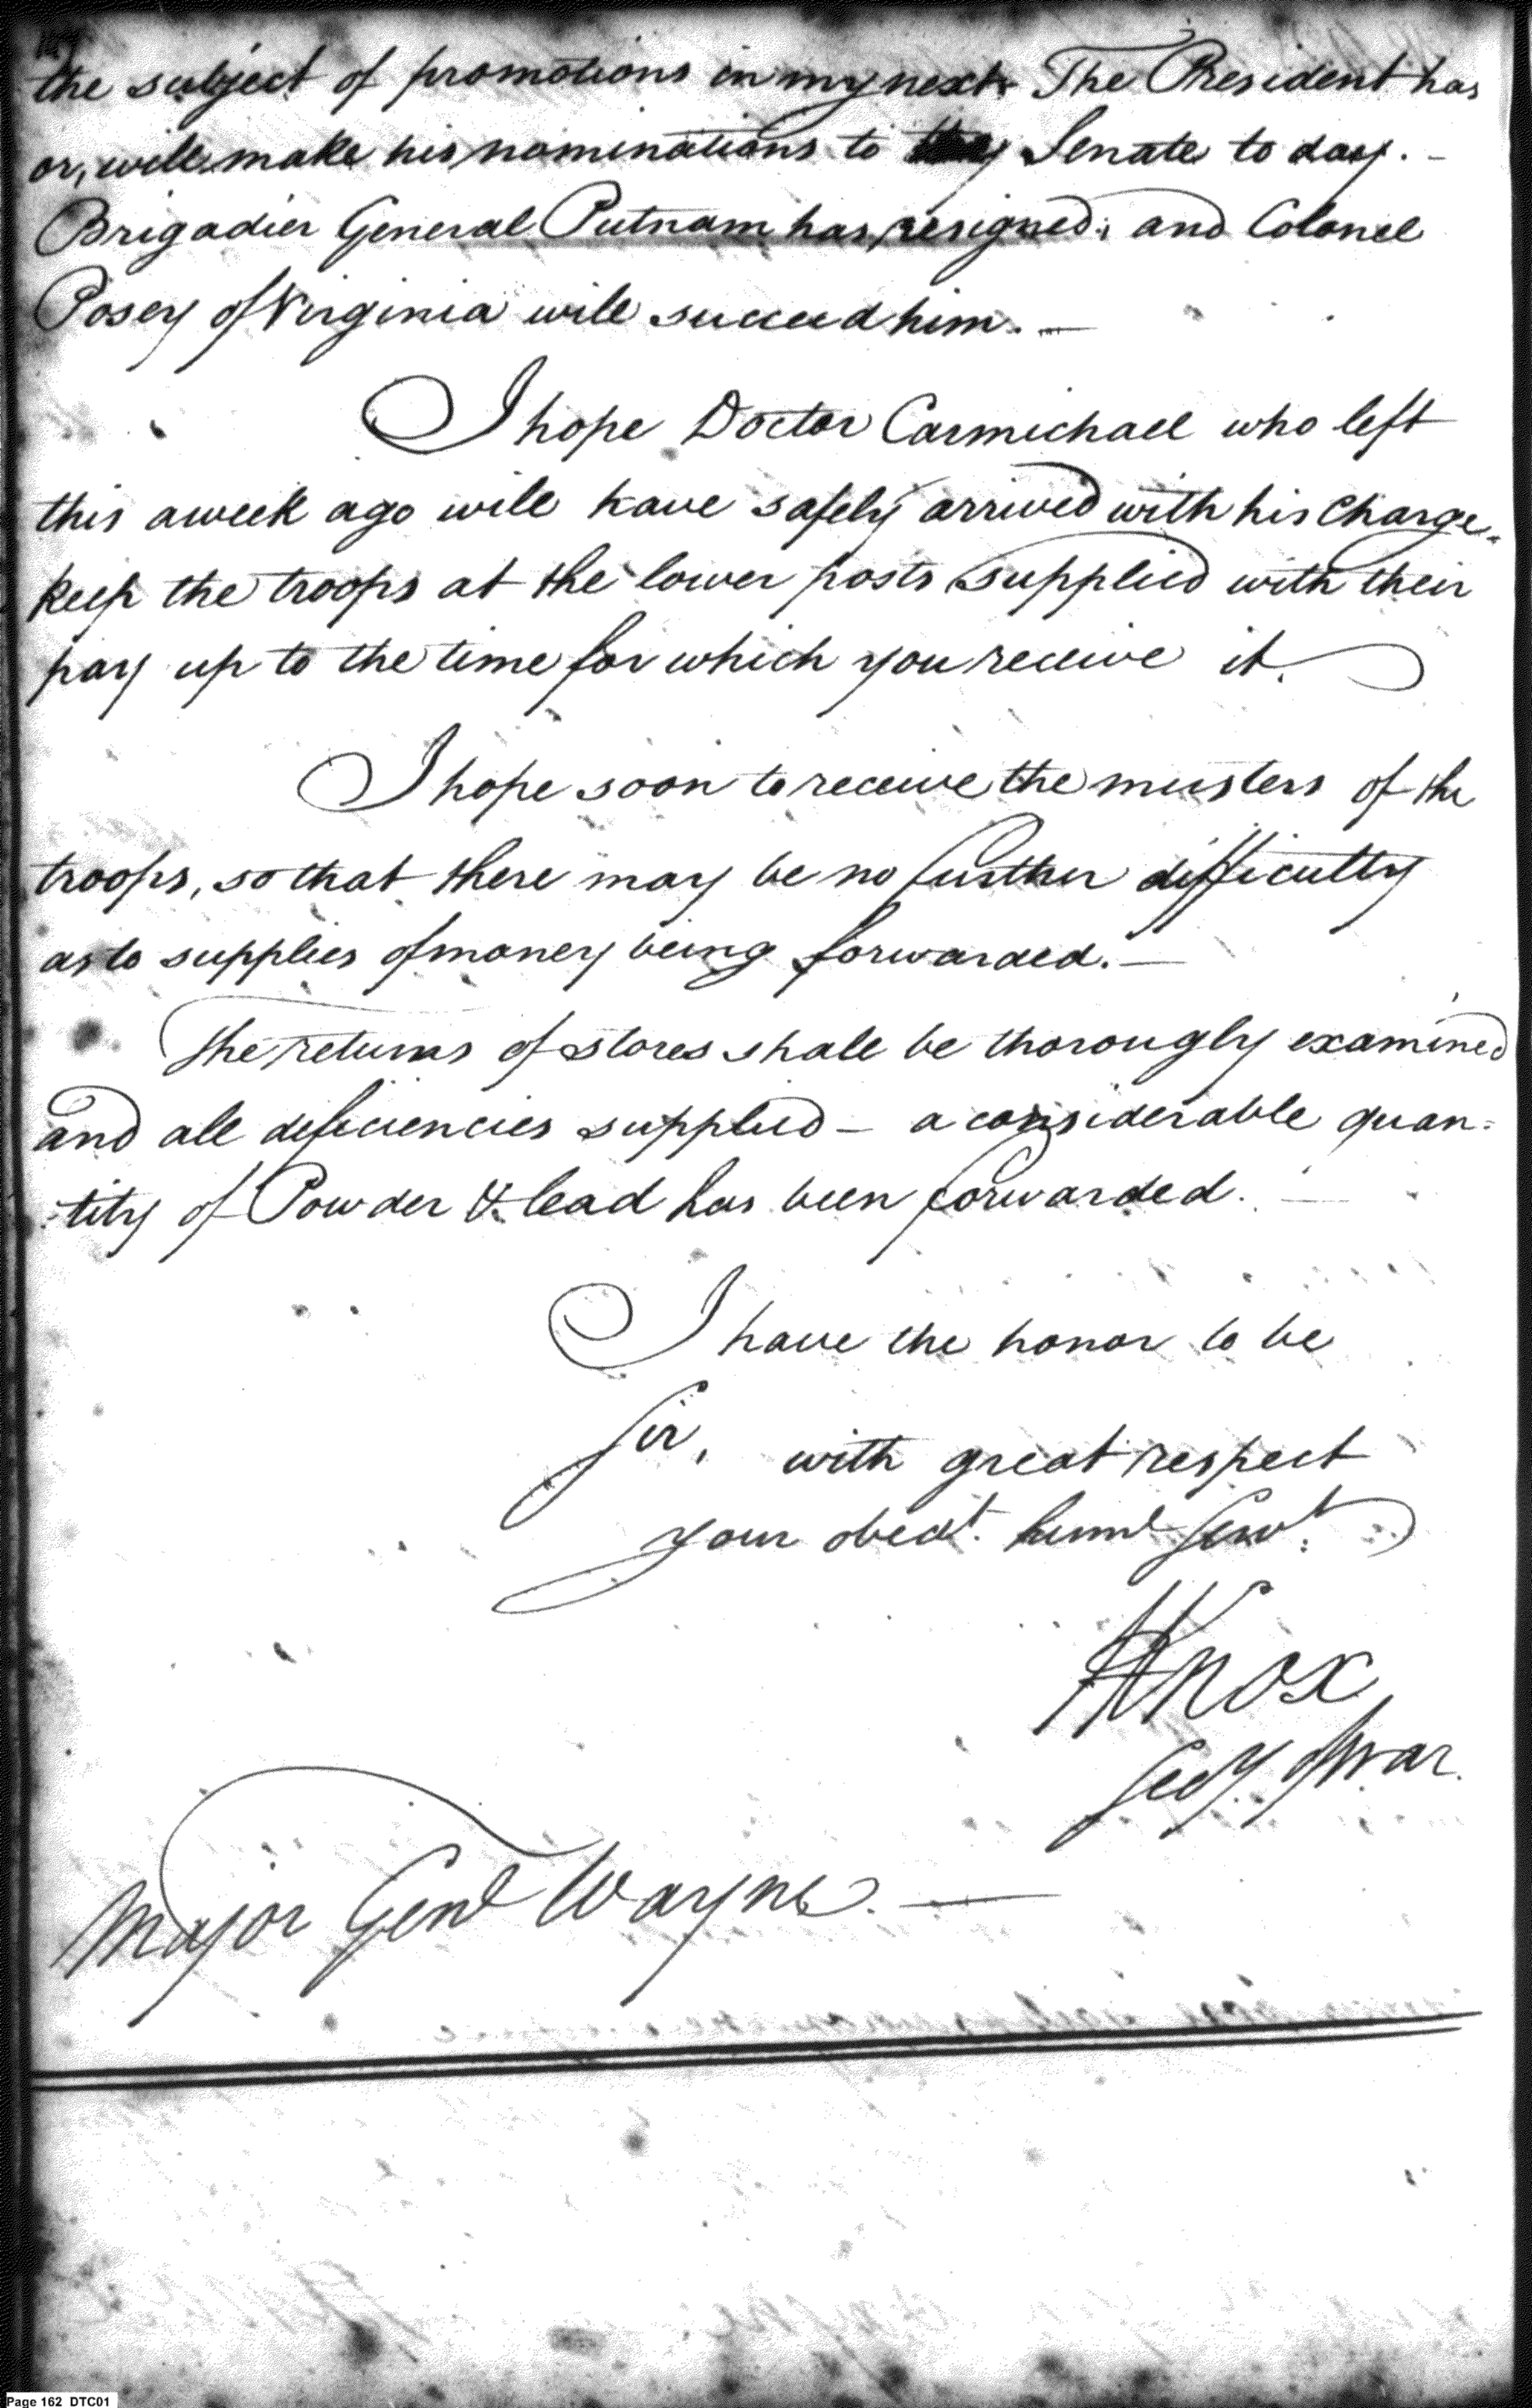 the subject of promotions in my next. The President has
or, will make his nominations to Senate to day. -
Brigadier General Putnam has resigned; and Colonel
Posey of Virginia will succeed him. —
I hope Doctor Carmichael who left
this a week ago will have safely arrived with his Charge.
keep the troops at the lower posts supplied with their
pay up to the time for which you receive it.
I hope soon to receive the musters of the
troops, so that there may be no further difficulty
as to supplies of money being forwarded. —
The returns of stores shall be thorougly examined
and all deficiencies supplied – a considerable quan=
=tity of Powder & lead has been forwarded. —
I have the honor to be
Sir, with great respect
your obedt. huml Servt.
HKnox
Secy. of War.
Major Genl Wayne. —
Page 162 DTC01